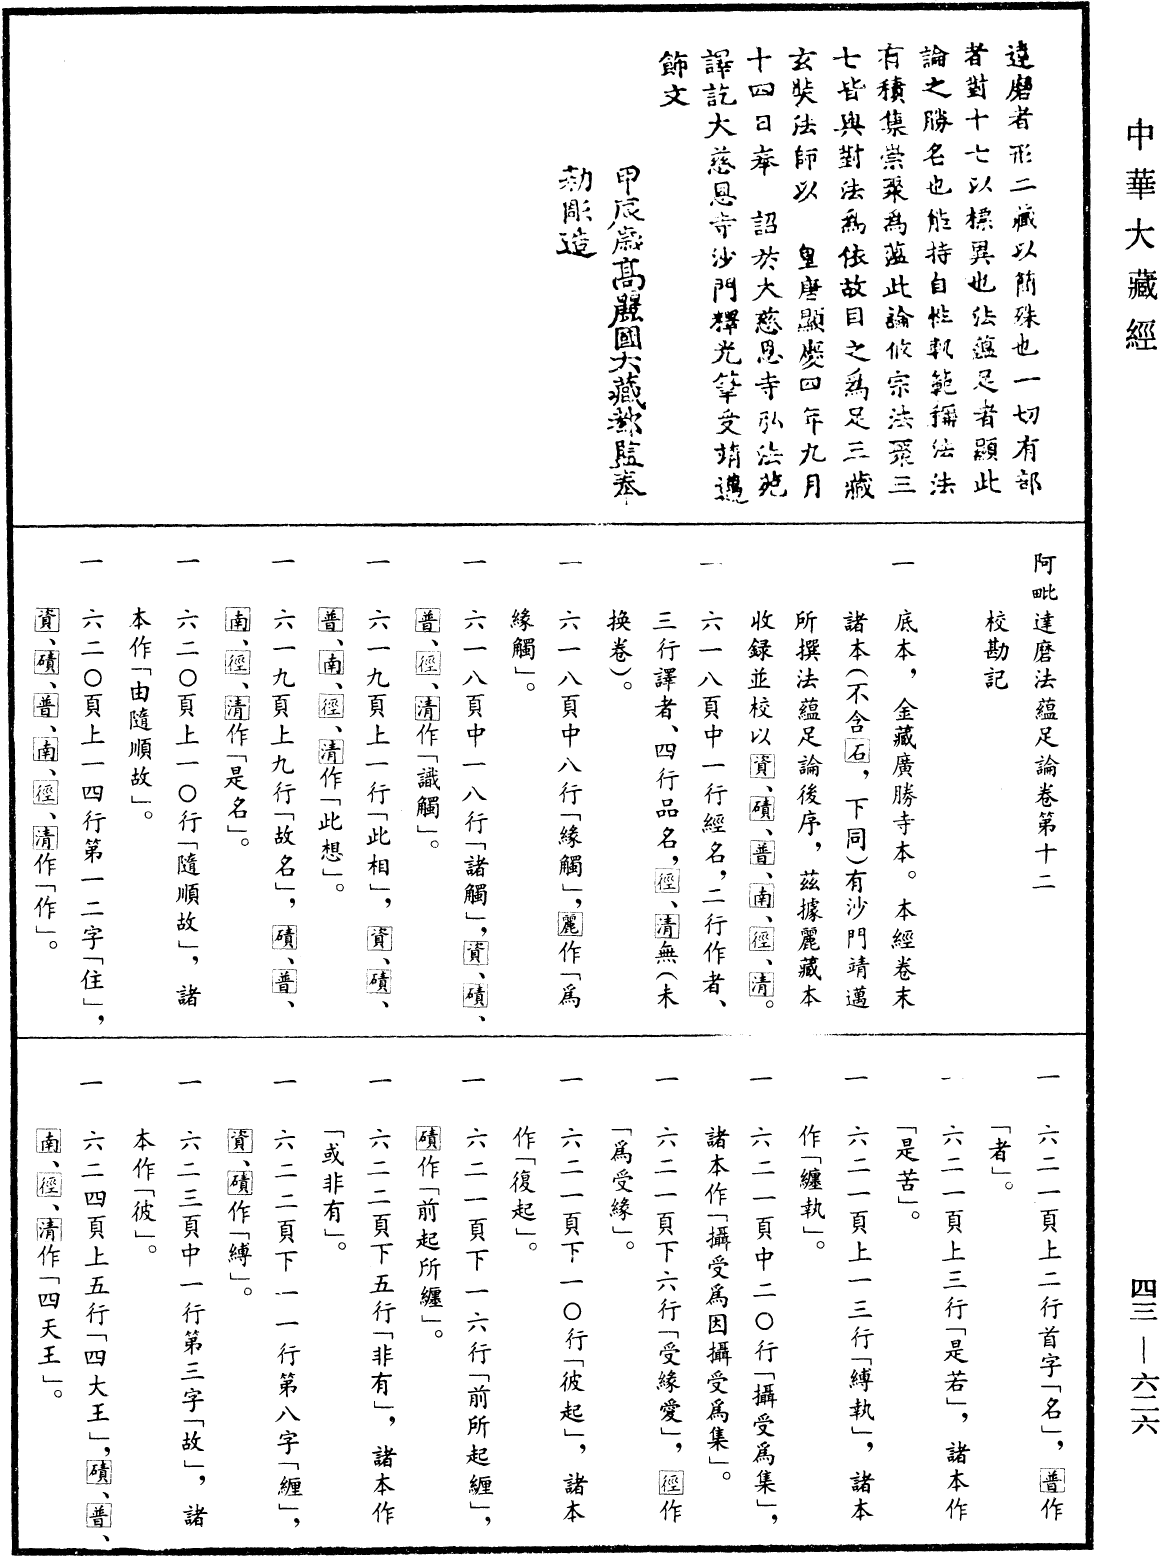 中華大藏經
達磨者形二藏以簡殊也一切有部
者對十七以標異也法蘊足者顯此
論之勝名也能持自性軌範稱法法
有積集崇聚爲蘊此論攸宗法聚三
七皆與對法爲依故目之爲足三藏
玄奘法師以 皇唐顯慶四年九月
十四日奉 詔於大慈恩寺弘法苑
譯訖大慈恩寺沙門釋光筆受靖邁
飾文
甲辰歲高麗國大藏都監奉
勅彫造
阿毗達磨法蘊足論卷第十二
校勘記
一 底本，金藏廣勝寺本。本經卷末
諸本（不含石，下同）有沙門靖邁
所撰法蘊足論後序，茲據麗藏本
收録並校以資、磧、普、南、徑、清。
一 六一八頁中一行經名，二行作者、
三行譯者、四行品名，徑、清無（未
換卷）。
一 六一八頁中八行「緣觸」，麗作「爲
緣觸」。
一 六一八頁中一八行「諸觸」，資、磧、
普、徑、清作「識觸」。
一 六一九頁上一行「此相」，資、磧、
普、南、徑、清作「此想」。
一 六一九頁上九行「故名」，磧、普、
南、徑、清作「是名」。
一 六二〇頁上一〇行「隨順故」，諸
本作「由隨順故」。
一 六二〇頁上一四行第一二字「住」，
資、磧、普、南、徑、清作「作」。
一 六二一頁上二行首字「名」，普作
「者」。
一 六二一頁上三行「是若」，諸本作
「是苦」。
一 六二一頁上一三行「縛執」，諸本
作「纏執」。
一 六二一頁中二〇行「攝受爲集」，
諸本作「攝受爲因攝受爲集」。
一 六二一頁下六行「受緣愛」，徑作
「爲受緣」。
一 六二一頁下一〇行「彼起」，諸本
作「復起」。
一 六二一頁下一六行「前所起纏」，
磧作「前起所纏」。
一 六二二頁下五行「非有」，諸本作
「或非有」。
一 六二二頁下一一行第八字「纏」，
資、磧作「縛」。
一 六二三頁中一行第三字「故」，諸
本作「彼」。
一 六二四頁上五行「四大王」，磧、普、
南、徑、清作「四天王」。
四三—六二六